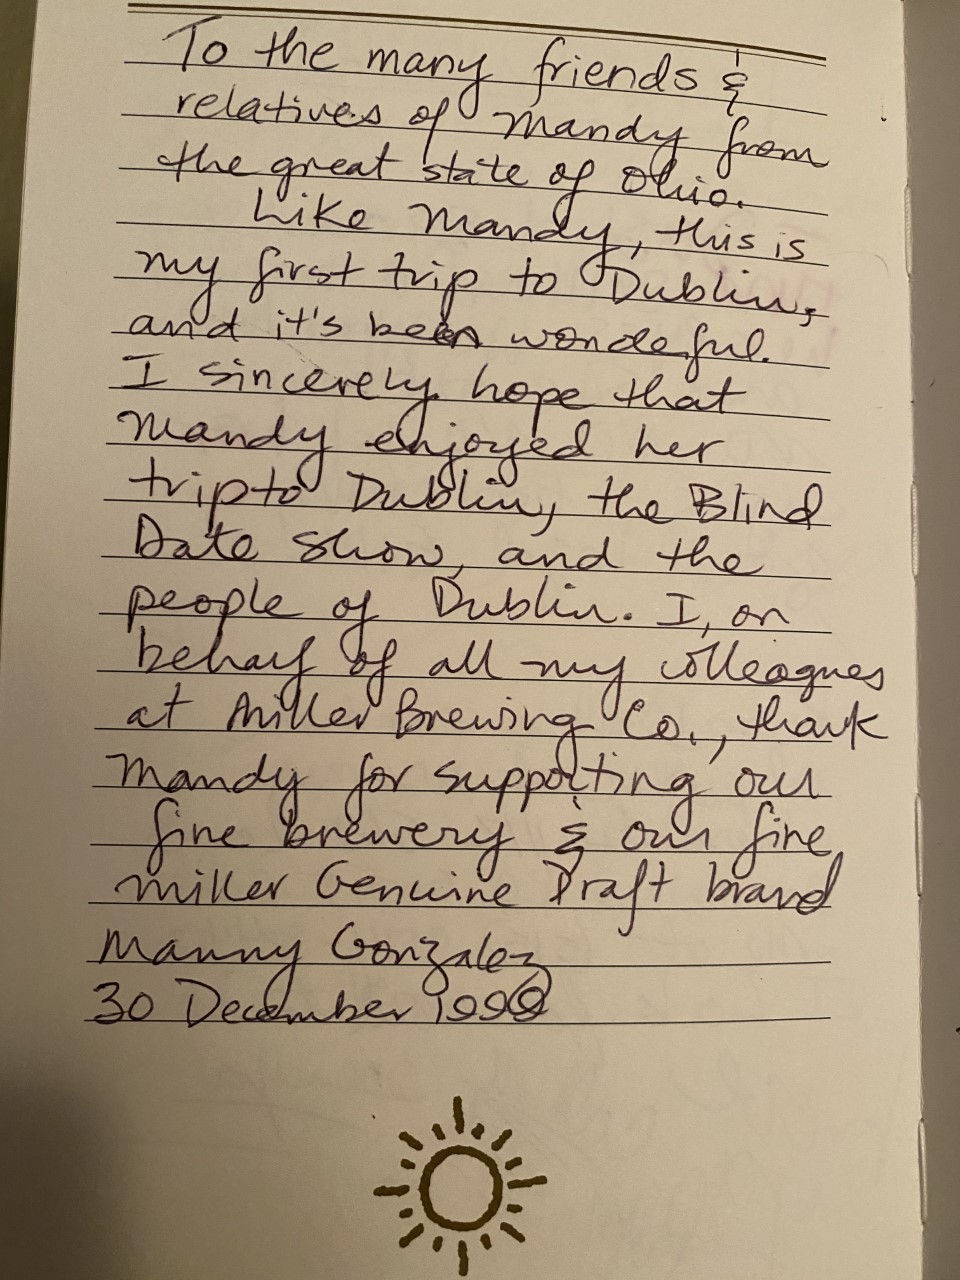 To the many friends &
relatives of Mandy from
the great state of Ohio.
Like Mandy, this is
my first trip to Dublin,
and it's been wondeful.
I sincerely hope that
Mandy enjoyed her
trip to Dublin, the Blind
Date show, and the
people of Dublin. I, on
behalf of all my colleagues
at Miller Brewing Co., thank
Mandy for supporting our
fine brewery & our fine
Miller Genuine Draft brand
Manny Gonzalez
30 December